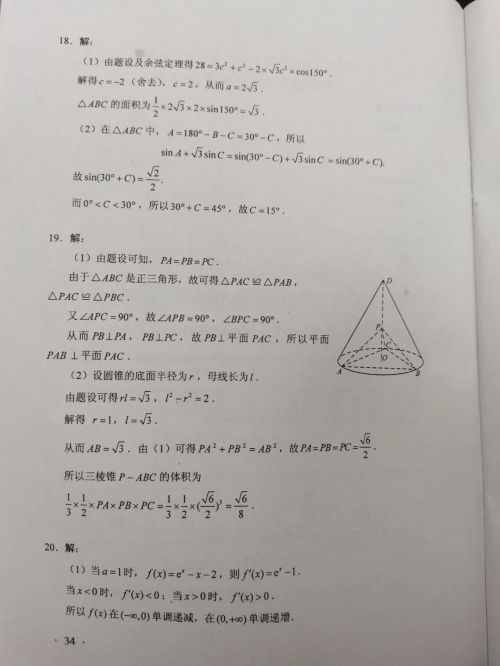 18. 解:
(1) 由题设及余弦定理得 28 = 3c² + c² − 2×√3c²×cos150°.
解得 c = −2 (舍去), c = 2, 从而 a = 2√3.
△ABC 的面积为 1/2 × 2√3 × 2 × sin150° = √3.
(2) 在 △ABC 中, A = 180° − B − C = 30° − C, 所以
sin A + √3 sin C = sin(30° − C) + √3 sin C = sin(30° + C).
故 sin(30° + C) = √2/2.
而 0° < C < 30°, 所以 30° + C = 45°, 故 C = 15°.
19. 解:
(1) 由题设可知, PA = PB = PC.
由于 △ABC 是正三角形, 故可得 △PAC ≌ △PAB,
△PAC ≌ △PBC.
又 ∠APC = 90°, 故 ∠APB = 90°, ∠BPC = 90°.
从而 PB⊥PA, PB⊥PC, 故 PB⊥平面 PAC, 所以平面
PAB ⊥平面 PAC.
D
P
C
O
A
B
(2) 设圆锥的底面半径为 r, 母线长为 l.
由题设可得 rl = √3, l² − r² = 2.
解得 r = 1, l = √3.
从而 AB = √3. 由 (1) 可得 PA² + PB² = AB², 故 PA = PB = PC = √6/2.
所以三棱锥 P − ABC 的体积为
1/3 × 1/2 × PA × PB × PC = 1/3 × 1/2 × (√6/2)³ = √6/8.
20. 解:
(1) 当 a = 1 时, f(x) = eˣ − x − 2, 则 f′(x) = eˣ − 1.
当 x < 0 时, f′(x) < 0; 当 x > 0 时, f′(x) > 0.
所以 f(x) 在 (−∞,0) 单调递减, 在 (0,+∞) 单调递增.
· 34 ·